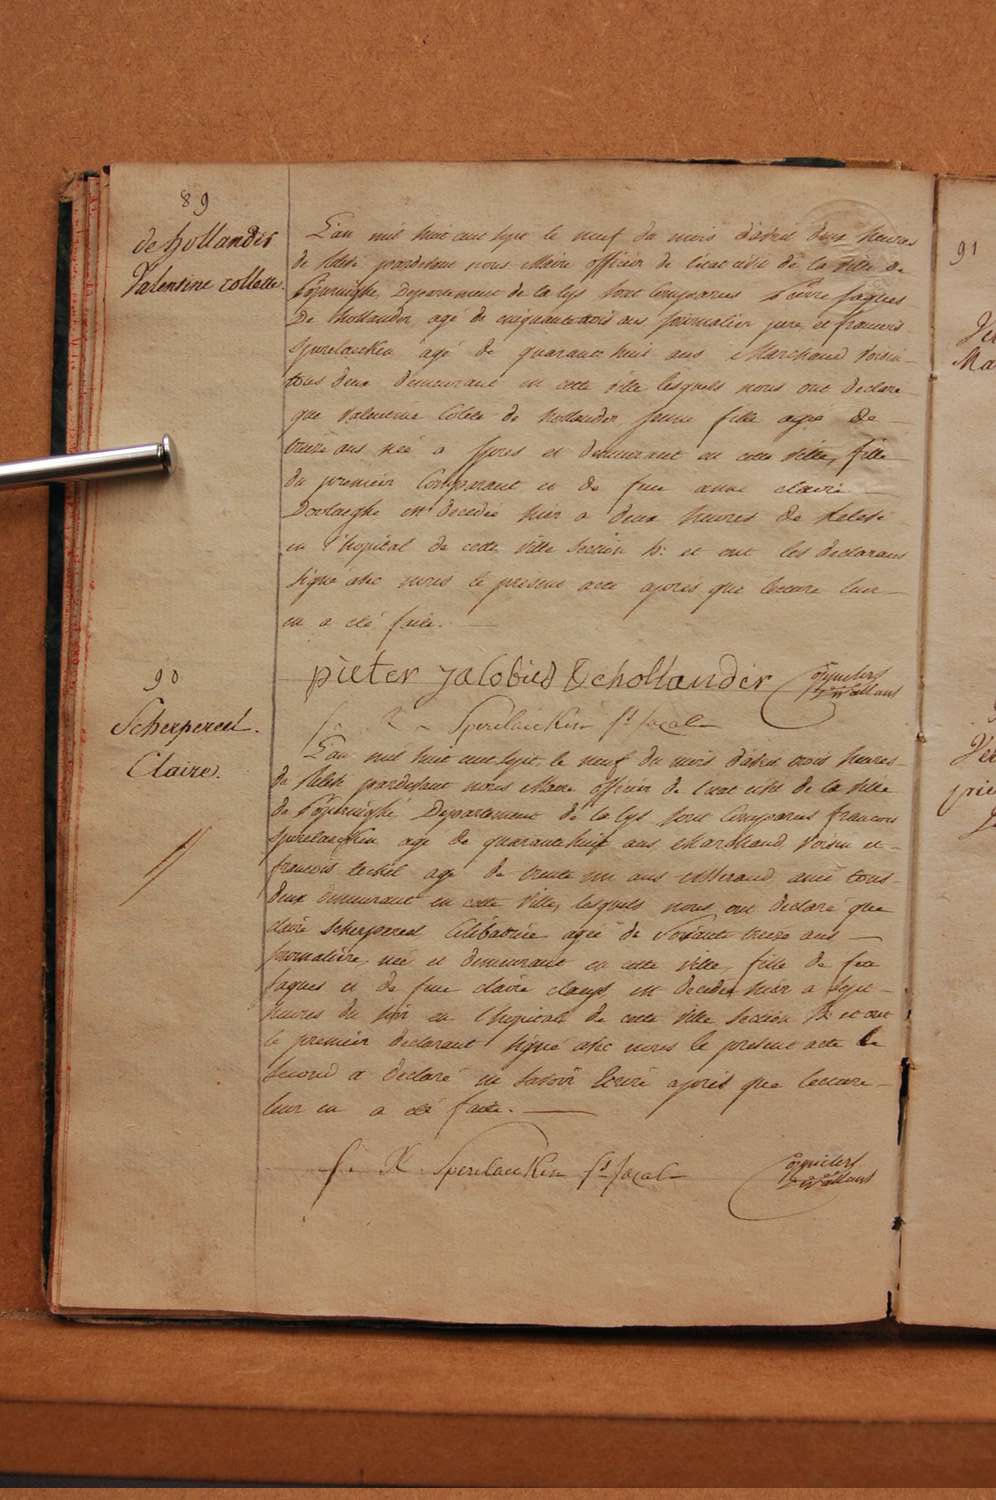 89
de hollander
Valentine collette.
L'an mil huit cent sept le neuf du mois d'avril deux heures
de relevé pardevant nous Maire officier de l'etat civil de la ville de
Poperinghe, Departement de la Lys sont Comparus Pierre Jaques
De hollander agé de cinquante trois ans journalier pere, et francois
Sperlaecken agé de quarante huit ans Marchand voisin
tous deux demeurant en cette ville lesquels nous ont declaré
que Valentine Colete de hollander jeune fille agée de
treize ans née a Ypres et demeurant en cette ville, fille
du premier Comparant et de feue anne claire
est decedée hier a deux heures de relevé
en l'hopital de cette ville Section b: et ont les declarans
signé avec nous le present acte aprés que lecture leur
en a eté faite.
pieter Jacobus dehollander
f. X. Sperlaecken ft Jacob
90
Scherpereel.
Claire.
L'an mil huit cent sept le neuf du mois d'avril trois heures
de relevé pardevant nous Maire officier de l'etat civil de la ville
de Poperinghe Departement de la Lys sont Comparus francois
Sperlaecken agé de quarante huit ans Marchand voisin et
francois agé de trente un ans ami tous
deux demeurant en cette ville, lesquels nous ont declaré que
claire Scherpereel Célibatrice agée de Soixante treize ans
journaliére, née et demeurant en cette ville, fille de feu
Jaques et de feue claire claeys est decedée hier a Sept
heures du soir en l'hopital de cette ville Section b: et ont
le premier declarant signé avec nous le present acte le
second a declaré ne savoir Ecrire aprés que lecture
leur en a eté faite.
f. X. Sperlaecken ft Jacob
91